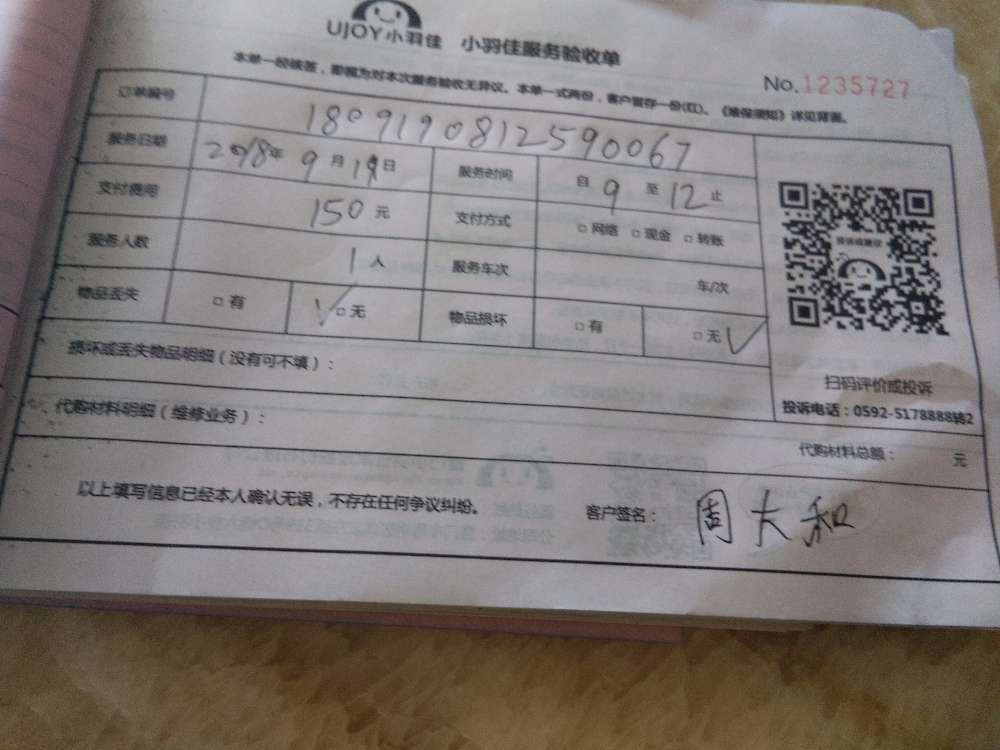 UJOY小羽佳 小羽佳服务验收单
No.1235727
本单一经核签，即视为对本次服务验收无异议。本单一式两份，客户留存一份(红)。《维保须知》详见背面。
订单编号 1809190812590067
服务日期 2018年 9月 19日 服务时间 自 9 至 12 止
支付费用 150元 支付方式 □网络 □现金 □转账
服务人数 1人 服务车次 车/次
物品丢失 □有 √□无 物品损坏 □有 □无√
投诉或建议
扫码评价或投诉
投诉电话：0592-5178888转2
损坏或丢失物品明细（没有可不填）：
代购材料明细（维修业务）：
代购材料总额： 元
以上填写信息已经本人确认无误，不存在任何争议纠纷。 客户签名：周大和